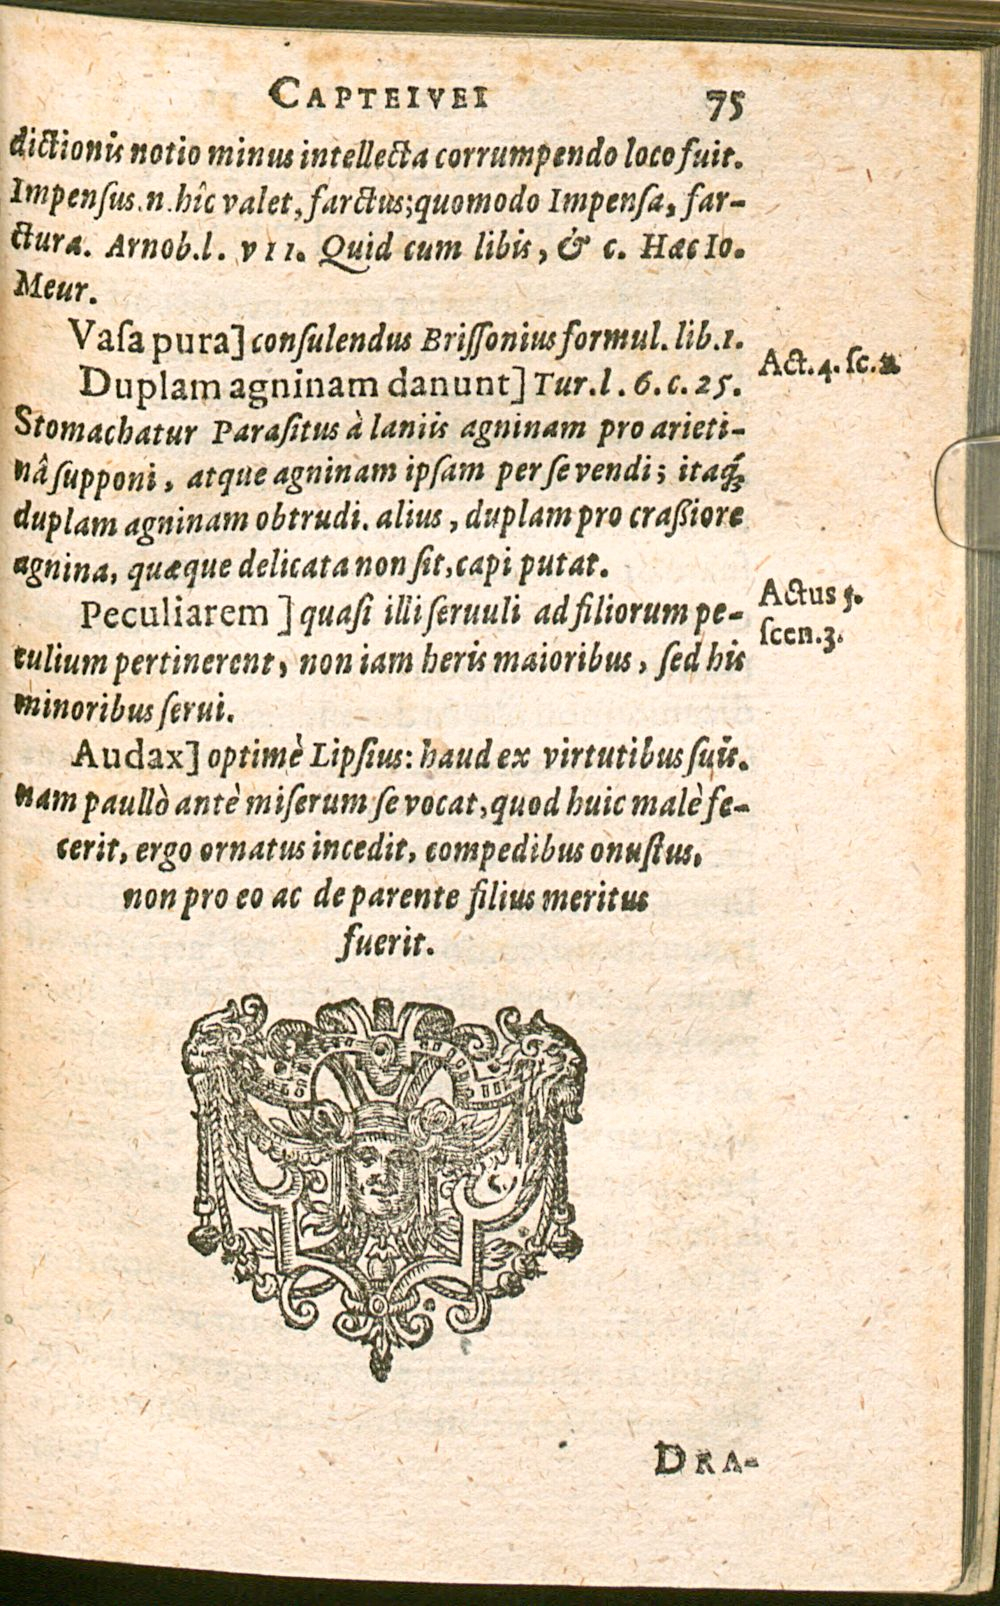 CAPTEIVEI 75
dictionis notio minus intellecta corrumpendo loco fuit.
Impenſus.n.hîc valet, farctus; quomodo Impenſa, far-
cturæ. Arnob.l. VII. Quid cum libis, & c. Hæc Io.
Meur.
Vaſa pura] conſulendus Briſſonius formul. lib.1.
Act.4. ſc.
Duplam agninam danunt] Tur.l.6.c.25.
Stomachatur Paraſitus à laniis agninam pro arieti-
nâ ſupponi, atque agninam ipſam per ſe vendi; itaq́;
duplam agninam obtrudi. alius, duplam pro craßiore
agnina, quæque delicata non ſit, capi putat.
Actus 5.
ſcen.3.
Peculiarem] quaſi illi ſeruuli ad filiorum pe-
culium pertinerent, non iam heris maioribus, ſed his
minoribus ſerui.
Audax] optimè Lipſius: haud ex virtutibus ſuis.
nam paullò antè miſerum ſe vocat, quod huic malè fe-
cerit, ergo ornatus incedit, compedibus onuſtus,
non pro eo ac de parente filius meritus
fuerit.
DRA-